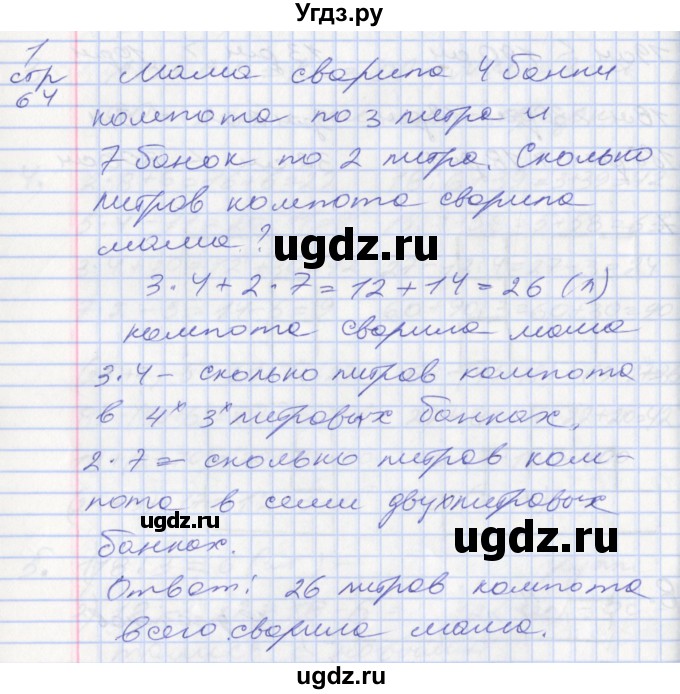 Угдз.ру
1
стр
64
Мама сварила 4 банки
компота по 3 литра и
7 банок по 2 литра. Сколько
литров компота сварила
мама?
ugdz.ru
3·4+2·7=12+14=26 (л)
компота сварила мама
3·4 – сколько литров компота
в 4х 3х литровых банках.
2·7 – сколько литров ком-
пота в семи двухлитровых
ugdz.ru
ugdz.ru
банках.
Ответ: 26 литров компота
всего сварила мама.
ugdz.ru